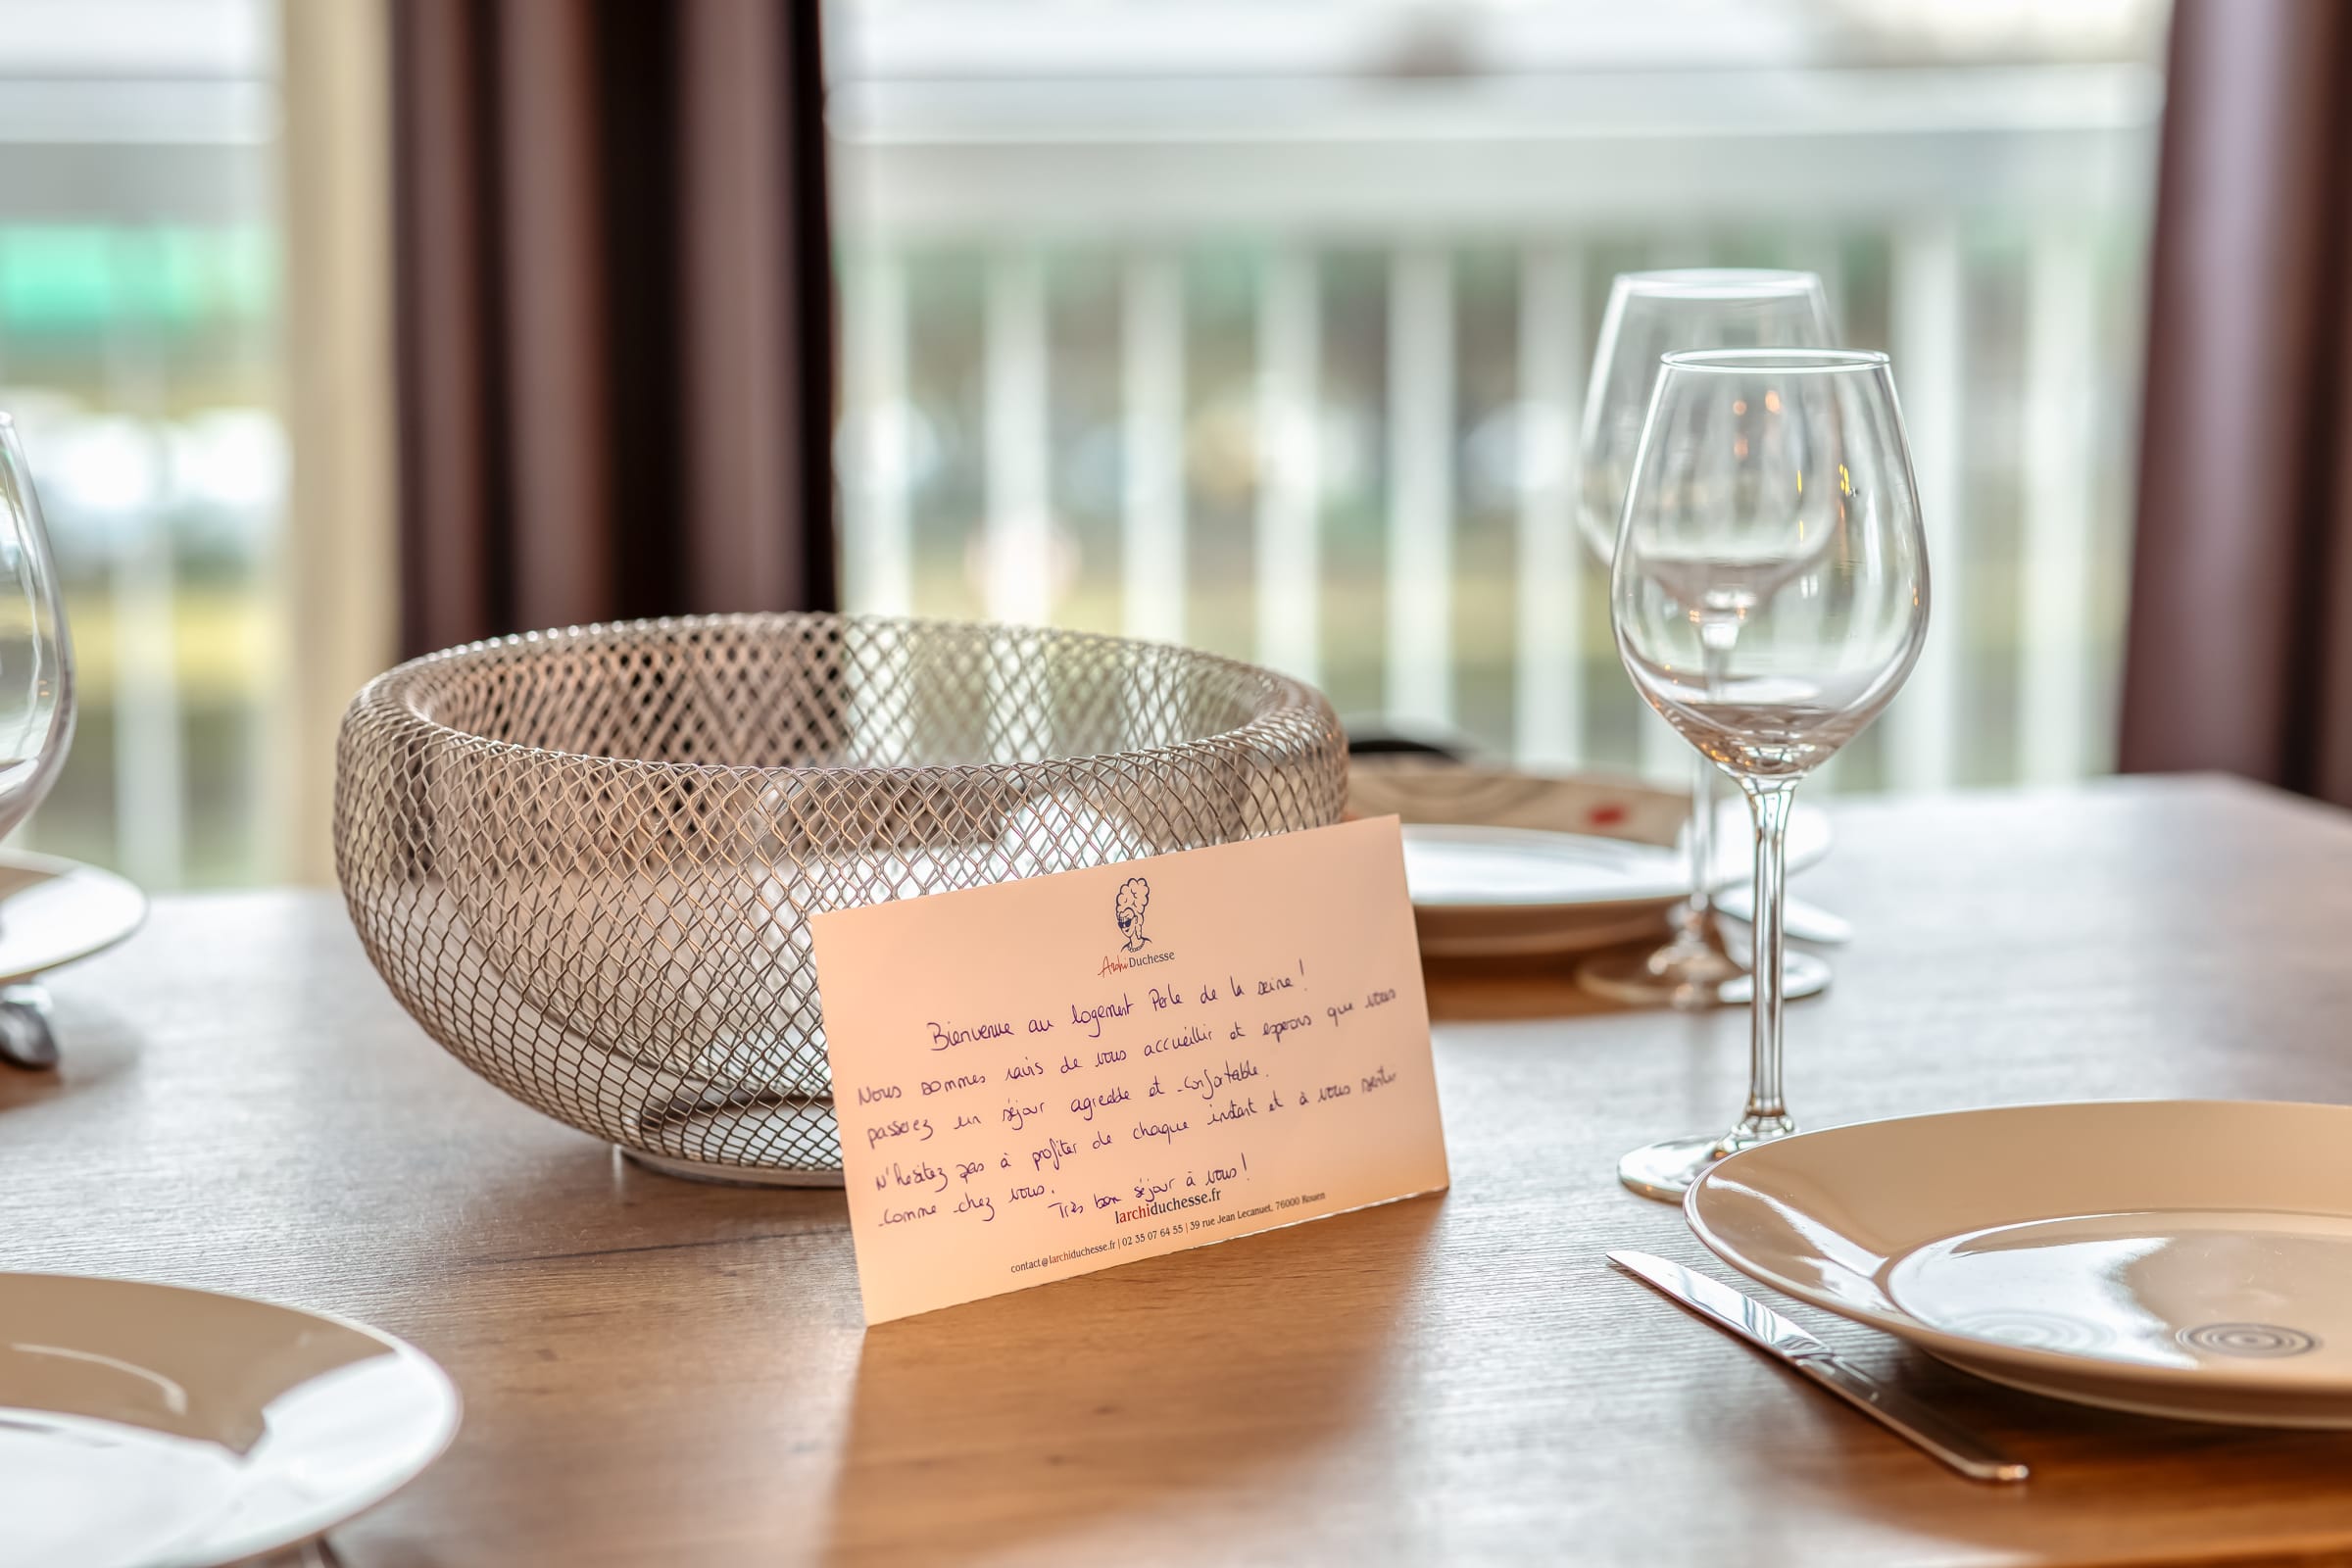 ArchiDuchesse
Bienvenue au logement Perle de la seine !
Nous sommes ravis de vous accueillir et esperons que vous
passerez un séjour agreable et confortable.
N'hesitez pas à profiter de chaque instant et à vous sentir
comme chez vous.
Très bon séjour à vous !
larchiduchesse.fr
contact@larchiduchesse.fr | 02 35 07 64 55 | 39 rue Jean Lecanuet, 76000 Rouen